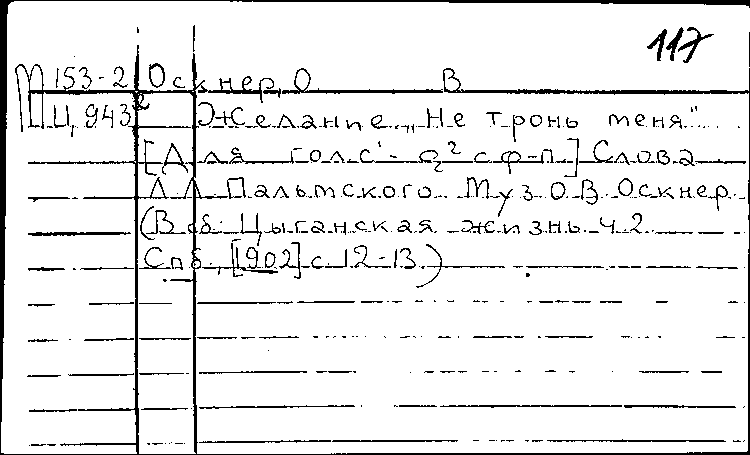 117
М 153-2 Оскнер, О. В.
Ц, 943² Желание „Не тронь меня"
[Для голс c¹-g² с ф-п.] Слова
Л. Л. Пальмского Муз О. В. Оскнер
(В сб: Цыганская жизнь ч. 2
Спб., [1902] с. 12-13.)